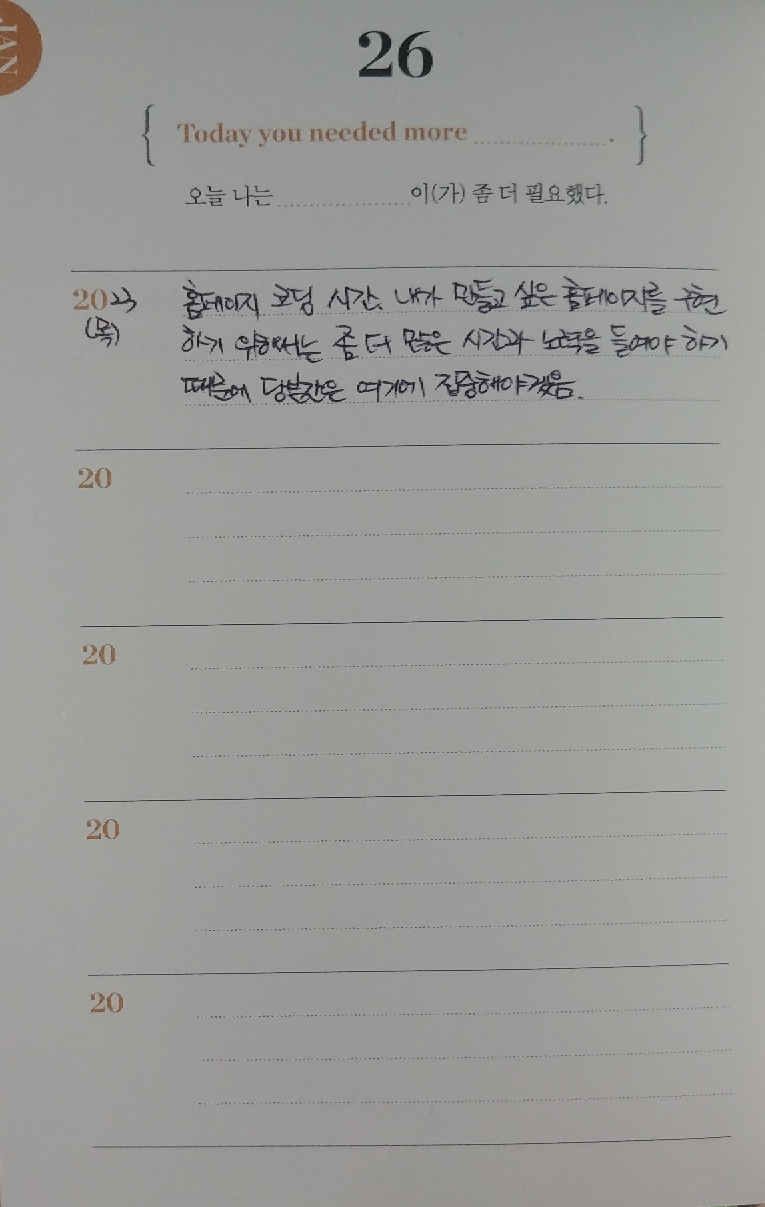 JAN
26
{ Today you needed more ..................... . }
오늘 나는 ..................... 이(가) 좀 더 필요했다.
2023 홈페이지 코딩 시간. 내가 만들고 싶은 홈페이지를 구현
(목) 하기 위해서는 좀 더 많은 시간과 노력을 들여야 하기
때문에 당분간은 여기에 집중해야겠음.
20
20
20
20